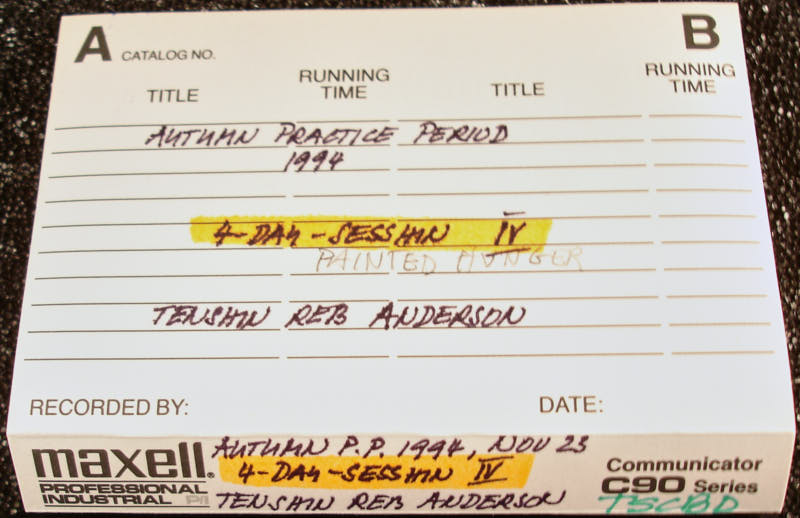 A CATALOG NO. B
TITLE RUNNING TIME TITLE RUNNING TIME
AUTUMN PRACTICE PERIOD
1994
4-DAY-SESSHIN IV
PAINTED HUNGER
TENSHIN REB ANDERSON
RECORDED BY: DATE:
maxell®
PROFESSIONAL
INDUSTRIAL P/I
AUTUMN P.P. 1994, NOV 23
4-DAY-SESSHIN IV
TENSHIN REB ANDERSON
Communicator
C90 Series
TSCBD